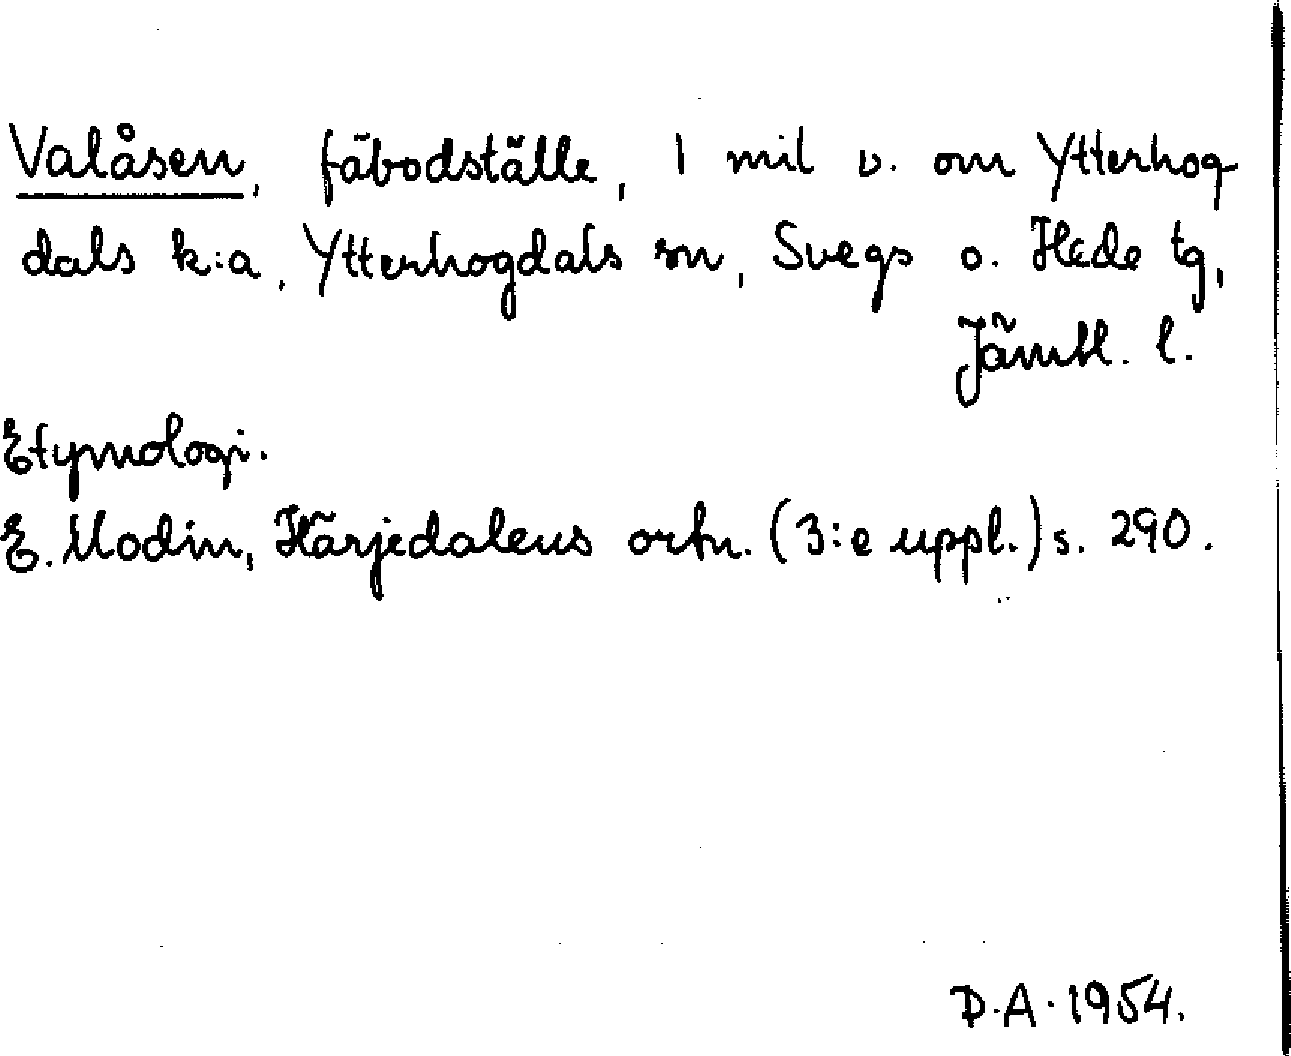 Valåsen, fäbodställe, 1 mil v. om Ytterhog
dals k:a, Ytterhogdals sn, Svegs o. Hede tg,
Jämtl. l.
Etymologi.
E. Modin, Härjedalens ortn. (3:e uppl.) s. 290.
D.A. 1954.